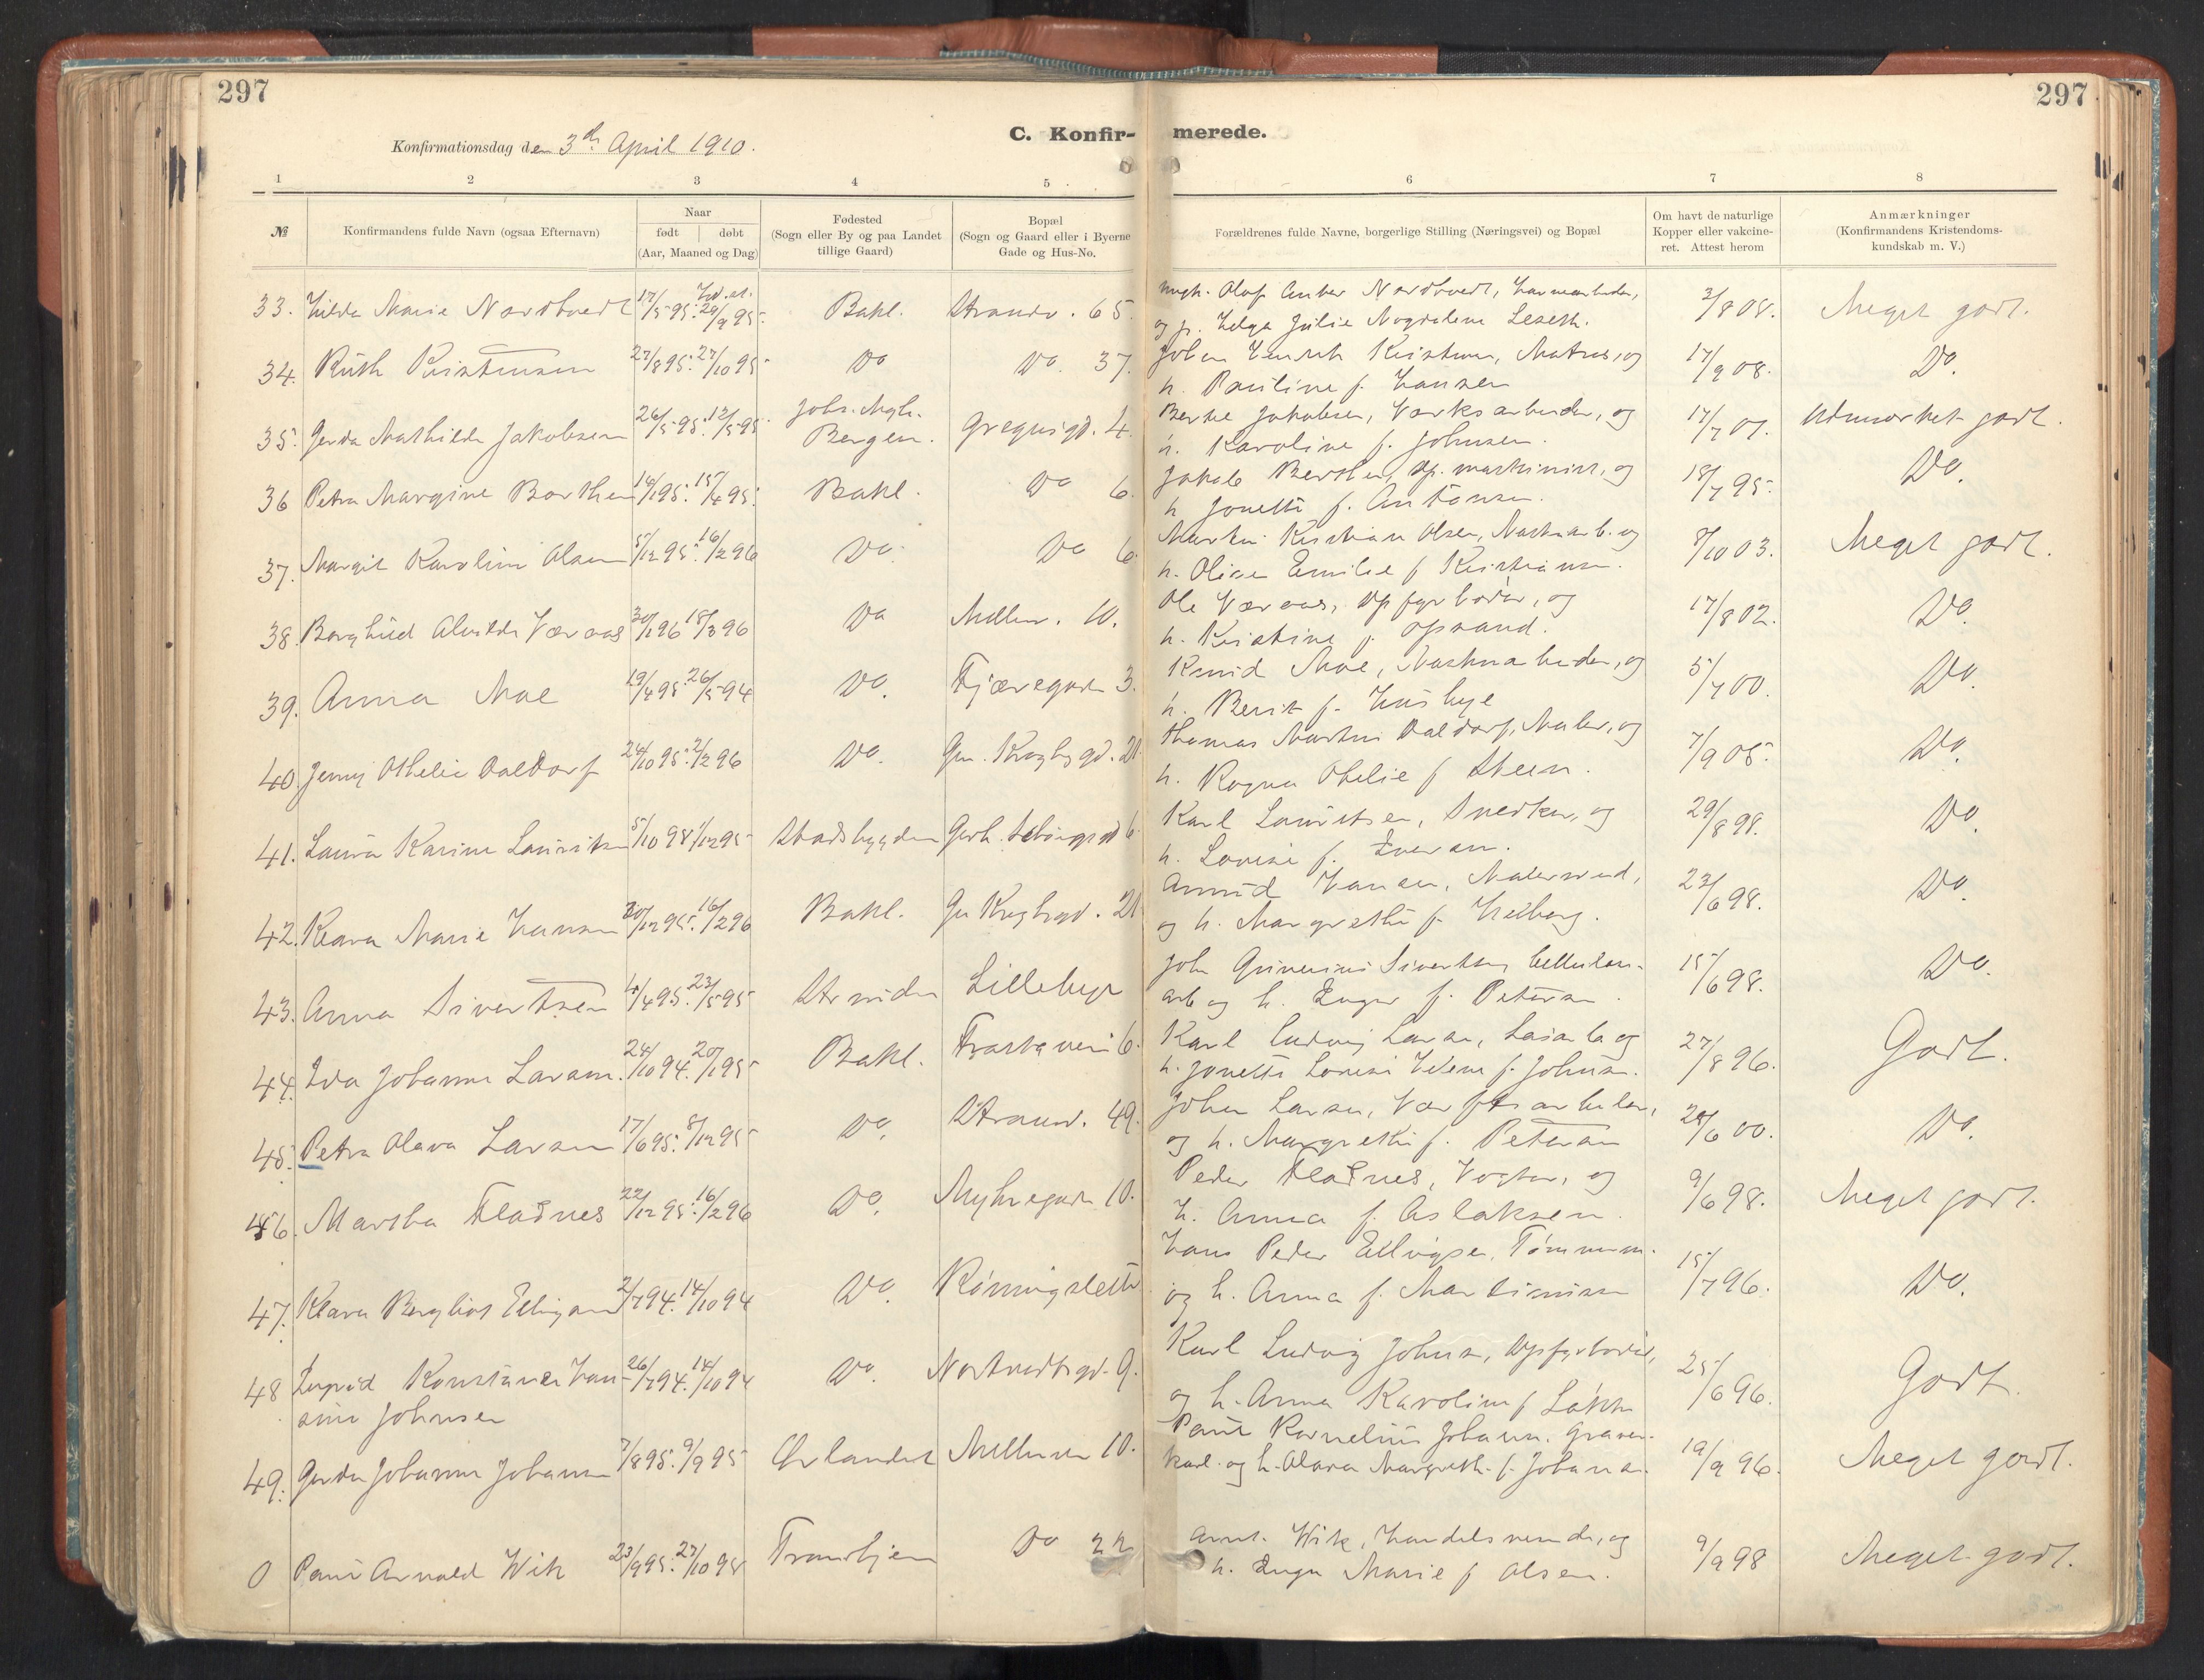 297
297
C. Konfir-
merede.
Konfirmationsdag den 3de April 1910.
1 2 3 4 5 6 7 8
№
Konfirmandens fulde Navn (ogsaa Efternavn)
Naar
født | døbt
(Aar, Maaned og Dag)
Fødested
(Sogn eller By og paa Landet
tillige Gaard)
Bopæl
(Sogn og Gaard eller i Byerne
Gade og Hus-No.
Forældrenes fulde Navne, borgerlige Stilling (Næringsvei) og Bopæl
Om havt de naturlige
Kopper eller vakcine-
ret. Attest herom
Anmærkninger
(Konfirmandens Kristendoms-
kundskab m. V.)
33. Hilda Marie Nordtvedt 17/5 95. 29/9 95. Bakl. Strandv. 65. Olaf Nordtvedt, 3/8 08. Meget godt.
og f. Helga Julie Magdalene Leseth.
34. Ruth Kristensen 27/8 95. 27/10 95 Do Do. 37. Johan Henrik Kristensen, Matros, og 17/9 08. Do.
h. Pauline f. Hansen
35. Gerda Mathilde Jakobsen 26/5 95. Bergen. Gregusgd. 4. Jakobsen, Værksarbeider, og 17/7 07. Udmærket godt.
h. Karoline f. Johnsen.
36 Petra Margine Barthen 14/1 95. 15/4 95. Bakl. Do 6. Jakob Berthen, Dp. maskinist, og 18/7 95. Do.
h Jonette f. Antonsen.
37. Margit Karoline Olsen 5/12 95. 16/2 96 Do. Do 6 Martin Kristian Olsen, og 8/10 03. Meget godt.
h. Oline Emilie f Kristiansen.
38. Borghild Alvilde Væraas 30/1 96 15/3 96 Do Mellemv. 10. Ole Væraas, Dpfyrbøder, og 17/8 02. Do.
h. Kristine f. Opsand.
39. Anna Moe 19/4 95. 26/5 94 Do. Fjæregaden 3. Knud Moe, og 5/7 00. Do.
h. Berit f. Husbye
40. Jenny Othelie Daldorf 24/10 95. 2/2 96 Do. Gm. Kroghsgd. 21 Thomas Martin Daldorf, Maler, og 7/9 05. Do.
h. Ragna Othelie f Steen.
41. Laura Karine Lauritsen 5/10 95 1/12 95 Stadsbygden Gerh. Schøningsgd 6. Karl Lauritsen, Snedker, og 29/8 98. Do.
h. Lovise f. Iversen.
42. Klara Marie Hansen 30/12 95. 16/2 96 Bakl. Gm Kroghsgd. 21 Hansen, Malersvend, 23/6 98. Do.
og h. Margrethe f. Hedberg.
43. Anna Sivertsen 4/4 95. 23/5 95 Strinden Lilleby Sivertsen, Cellulose- 15/6 98. Do.
arb og h. Inger f. Petersen.
44. Ida Johanne Larsen. 24/10 94. 20/1 95 Bakl. Frostaveien 6. Karl Ludvig Larsen, og 27/8 96. Godt.
h. Jonette Lovise f. Johnsen.
45. Petra Olava Larsen 17/6 95. 8/12 95 Do. Strandv. 49. Johan Larsen, Værftsarbeider, 28/6 00. Do.
og h. Margrethe f. Petersen
46. Martha Fladnes 22/12 95. 16/2 96 Do. Myhregaden 10. Peder Fladnes, Vogter, og 9/6 98. Meget godt.
h. Anna f. Aslaksen
47. Klara Bergliot Ellingsen 2/7 94. 14/10 94 Do. Rønningsletta Hans Peder Ellingsen, Tømmerm. 15/7 96. Do.
og h. Anna f. Martinisen
48 Ingrid Konstance Han- 26/7 94. 14/10 94 Do. Nordtvedtsgd. 9. Karl Ludvig Johnsen, Dpfyrbøder, 25/6 96. Godt.
sine Johnsen og h. Anna Karoline f Løkken
49. Gerda Johanne Johansen 7/8 95. 9/9 95 Ørlandet Mellemv 10. Paul Kornelius Johansen. Graver- 19/9 96. Meget godt.
karl. og h. Olava Margreth. f. Johansen.
0 Paul Arnold Wik 23/9 95. 27/10 95 Trondhjem Do 22 Arnt. Wik, Handelsmand, og 9/9 98 Meget godt.
h. Inga Marie f Olsen.